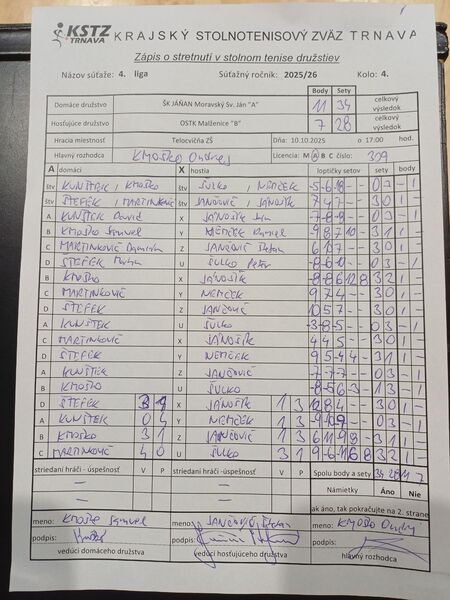 KSTZ
TRNAVA
KRAJSKÝ STOLNOTENISOVÝ ZVÄZ TRNAVA
Zápis o stretnutí v stolnom tenise družstiev
Názov súťaže: 4. liga Súťažný ročník: 2025/26 Kolo: 4.
Body Sety
Domáce družstvo ŠK JÁŇAN Moravský Sv. Ján "A" 11 34 celkový výsledok
Hosťujúce družstvo OSTK Malženice "B" 7 28 celkový výsledok
Hracia miestnosť Telocvičňa ZŠ Dňa: 10.10.2025 o 17:00 hod.
Hlavný rozhodca KMOŠKO Ondrej Licencia: M A B C číslo: 309
A domáci X hostia loptičky setov sety body
štv KUNŠTEK, KMOŠKO ŠULKO, NEMČEK 0 3 - 1
štv ŠTEFEK, MARTINKOVIČ JANČOVIČ, JÁNOŠÍK 7 4 7 - - 3 0 1 -
A KUNŠTEK David X JÁNOŠÍK 0 3 - 1
B KMOŠKO Samuel Y NEMČEK 3 1 1 -
C MARTINKOVIČ Z JANČOVIČ Štefan 6 10 7 - - 3 0 1 -
D ŠTEFEK U ŠULKO Peter 0 3 - 1
B KMOŠKO X JÁNOŠÍK 3 2 1 -
C MARTINKOVIČ Y NEMČEK 9 7 4 - - 3 0 1 -
D ŠTEFEK Z JANČOVIČ 10 5 7 - - 3 0 1 -
A KUNŠTEK U ŠULKO -3 -8 -5 - - 0 3 - 1
C MARTINKOVIČ X JÁNOŠÍK 4 4 5 - - 3 0 1 -
D ŠTEFEK Y NEMČEK 3 1 1 -
A KUNŠTEK Z JANČOVIČ -7 -7 -7 - - 0 3 - 1
B KMOŠKO U ŠULKO 1 3 - 1
D ŠTEFEK X JÁNOŠÍK 1 3 12 8 4 - - 3 0 1 -
A KUNŠTEK 0 4 Y NEMČEK 1 3 0 3 - 1
B KMOŠKO 3 1 Z JANČOVIČ 1 3 3 1 1 -
C MARTINKOVIČ 4 0 U ŠULKO 3 1 3 2 1 -
striedaní hráči - úspešnosť V P striedaní hráči - úspešnosť V P Spolu body a sety 34 28 11 7
Námietky Áno Nie
ak áno, tak pokračujte na 2. strane
meno: KMOŠKO Samuel meno: JANČOVIČ Štefan meno: KMOŠKO Ondrej
podpis: podpis: podpis:
vedúci domáceho družstva vedúci hosťujúceho družstva hlavný rozhodca